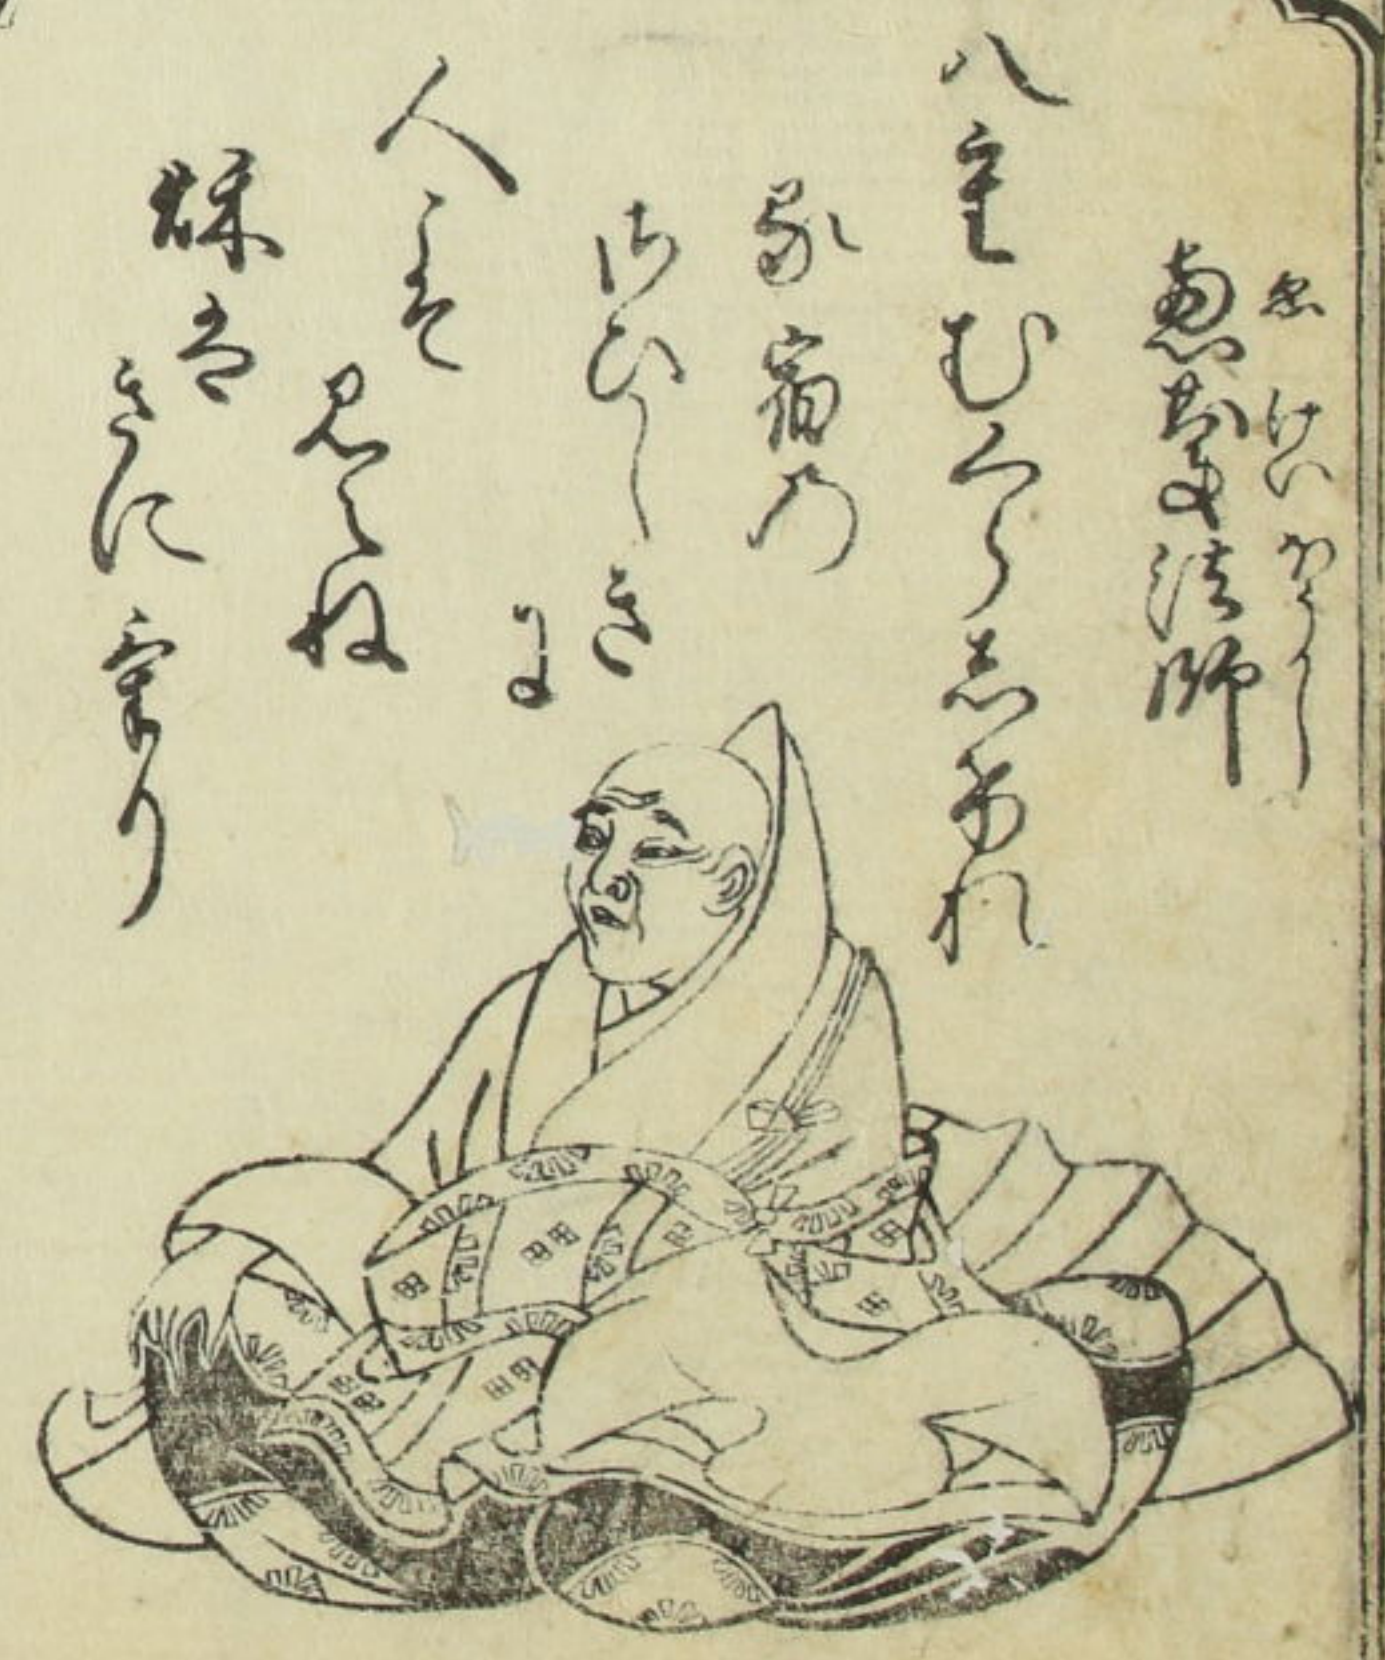 ゑけいほうし
恵慶法師
八重むくらしけれ
る宿の
さひしき
に
人こそ
見えね
秌は
きにけり